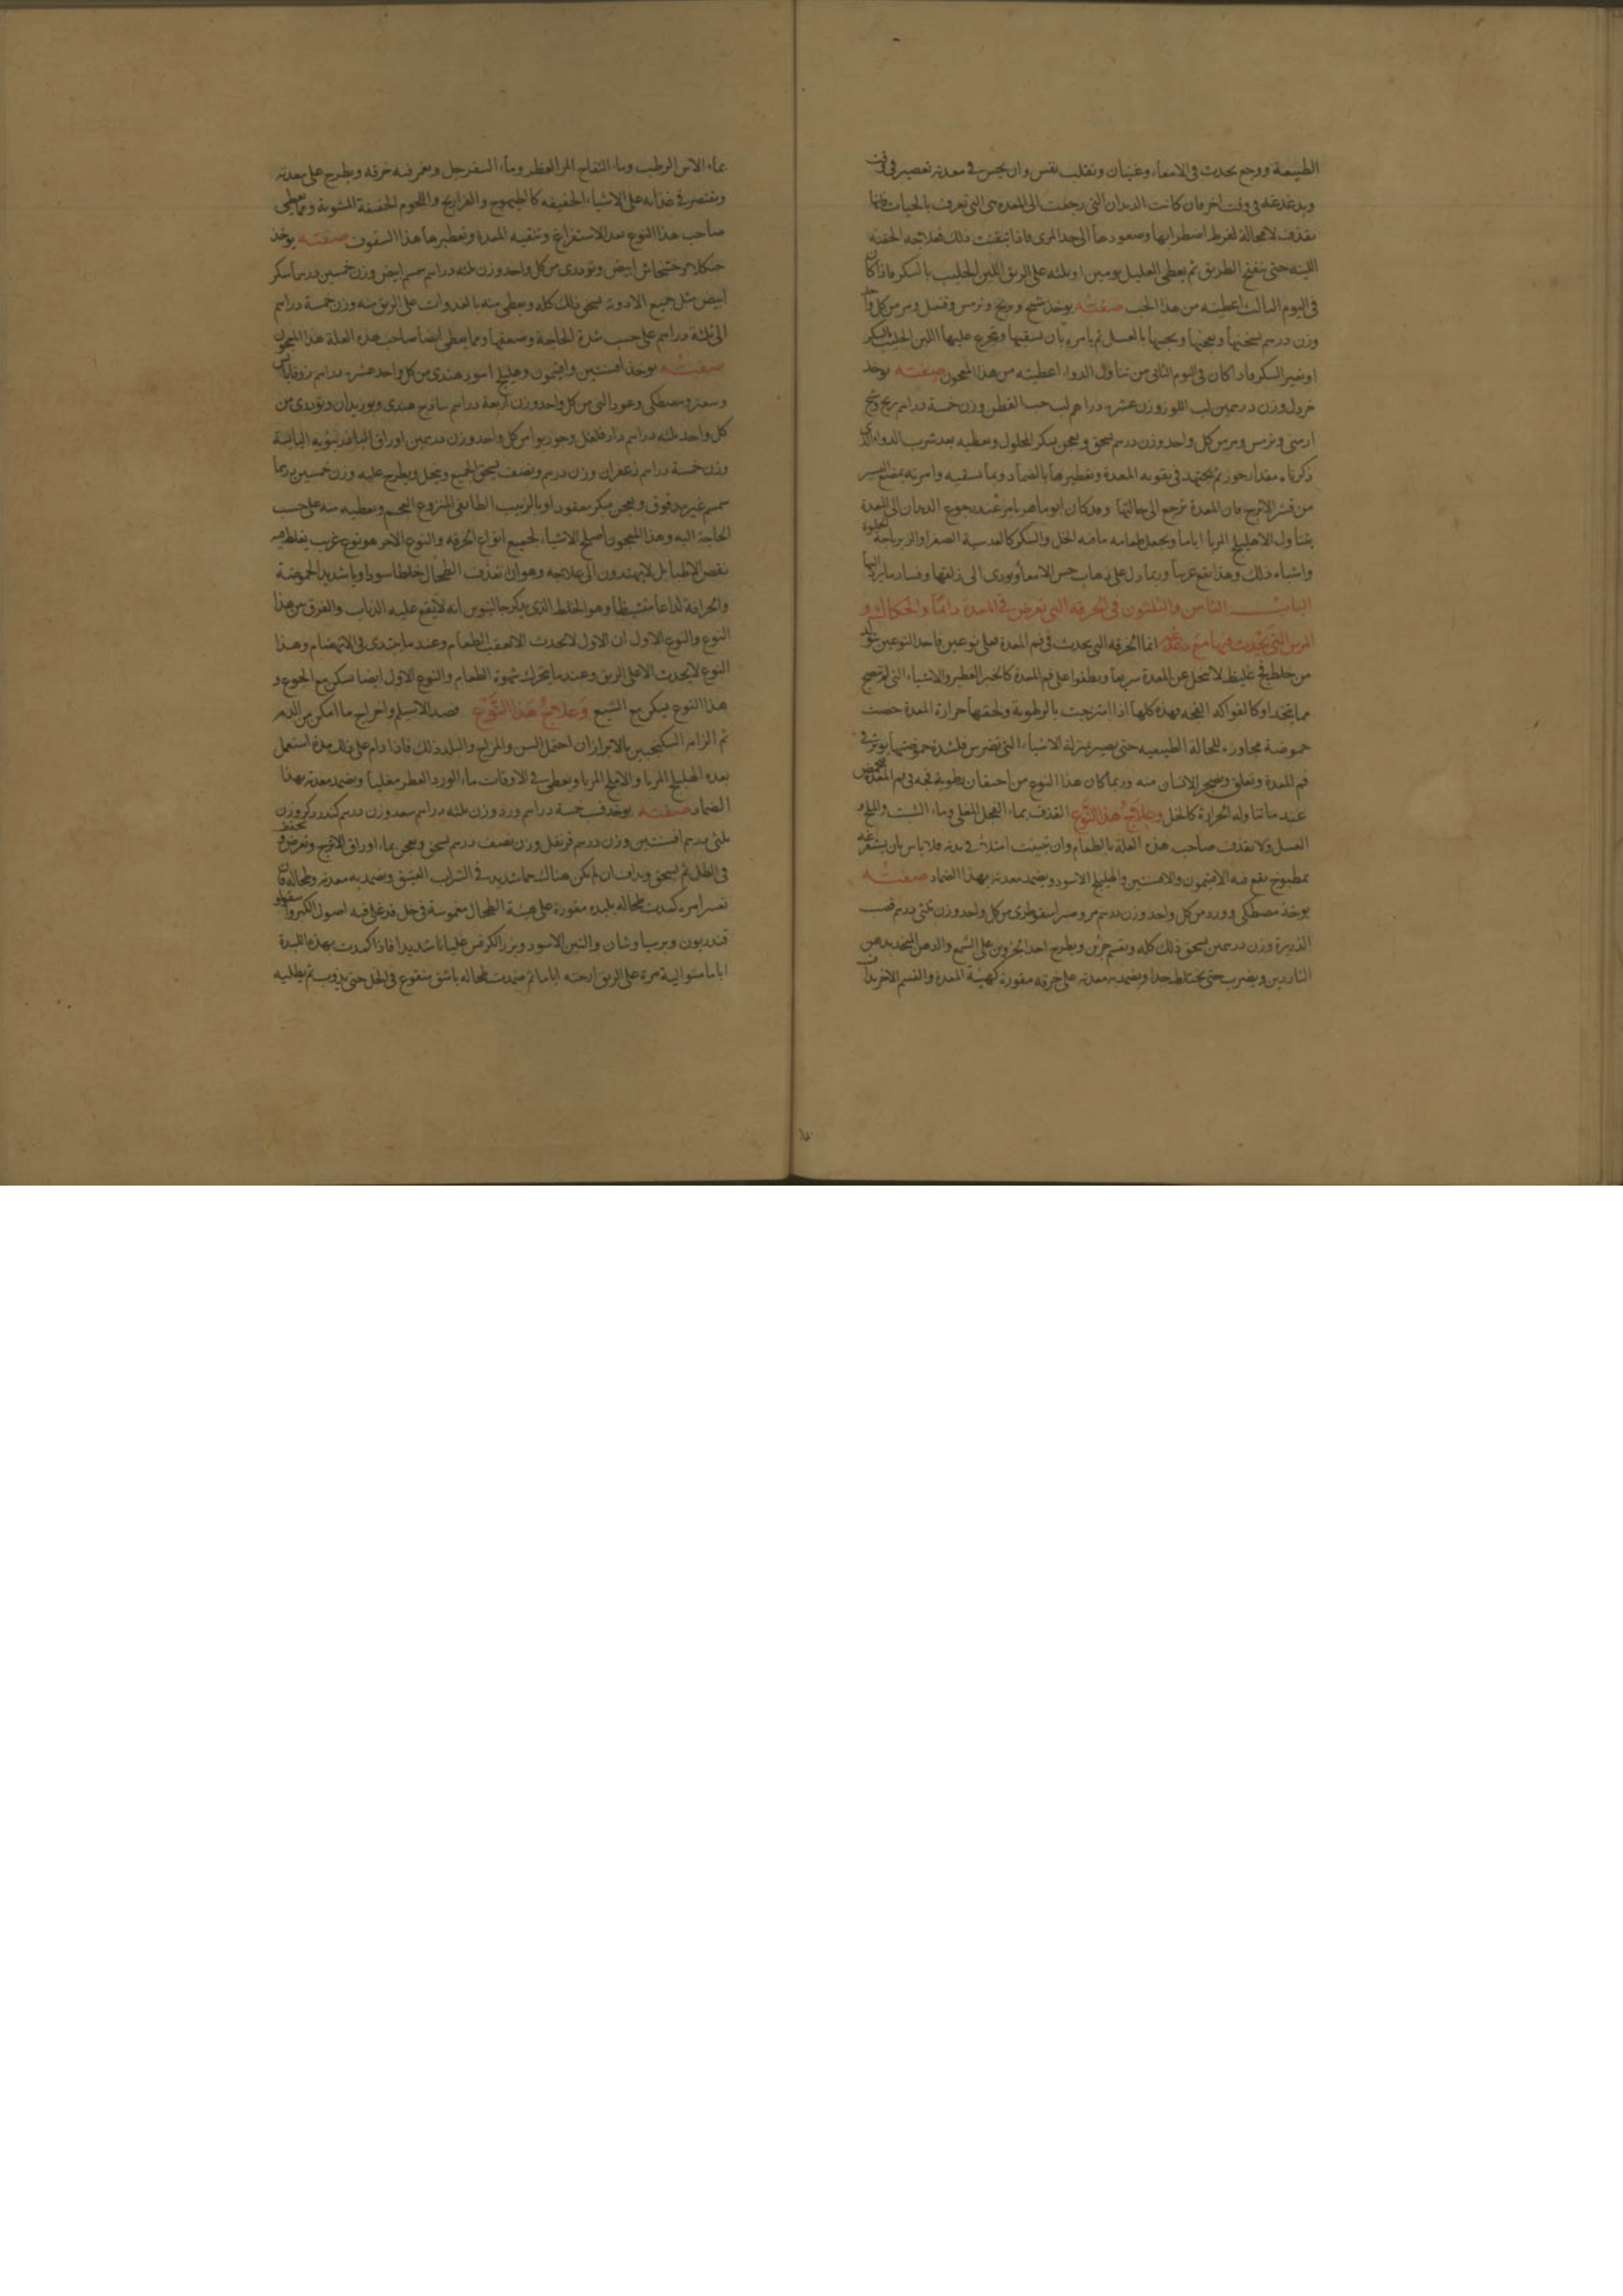 الطبيعة ووجع يحدث فى الامعاء وغثيان وتقلب نفس وان يحس فى معدته تعصير فى وقت
وبدغدغة فى وقت اخر فان كانت الديدان التى رجعت الى المعدة هى التى تعرف بالحيات فانها
تقذف لا محالة لفرط اضطرابها وصعودها الى حد المرى فاذا تيقنت ذلك فعلاجه الحقنة
اللينه حتى ينفتح الطريق ثم يعطى العليل يومين او ثلثه على الريق اللبن الحليب بالسكر فاذا كان
فى اليوم الثالث اعطيته من هذا الحب صفته يوخذ شيح وبرنج وترمس وقنبيل وسرمر من كل واحد
وزن درهم يسحقها ويعجنها ويحببها بالعسل ثم يامره بان يسفها ويتجرع عليها اللبن الحليب بالسكر
او بغير السكر فاذا كان فى اليوم الثانى من تناول الدواء اعطيته من هذا المعجون صفته يوخذ
خردل وزن درهمين لب اللوز وزن عشره دراهم لب حب القطن وزن خمسة دراهم برنج وشيح
ارمنى وترمس وسرمس كل واحد وزن درهم يسحق ويعجن بسكر المحلول ويعطيه بعد شرب الدواء الذى
ذكرناه مقدار جوز ثم يجتهد فى تقويه المعدة وتعطيرها بالضماد وبما تسقيه وامرته بمضغ اليسير
من قشر الاترج فان المعدة ترجع الى حالتها وقد كان ابو ماهر يامر عند رجوع الديدان الى المعدة
بتناول الاهليلج المربا اياما ويجعل طعامه ما فيه الخل والسكر كالعدسية الصفرا والزيرباجة الحلوة
واشباه ذلك وهذا يقع غريبا وربما دل على ذهاب حس الامعا ويودى الى زلقها وفساد ما يرد اليها
الباب الثامن والثلثون فى الحرقه التى تعرض فى المعدة دائما والحكاك و
التى تحدث فيها مع دغدغة اما الحرقه التى يحدث فى فم المعدة فعلى نوعين فاحد النوعين يتولد
من خلط فج غليظ لا ينحل عن المعدة سريعا ويطفوا على فم المعدة كالخبز الفطير والاشياء التى لم تنضج
مما يتخذ او كالفواكه الفجه فهذه كلها اذا امتزجت بالرطوبة ولحقها حرارة المعدة حمضت
حموضة مجاوزه للحالة الطبيعيه حتى يصير بمنزلة الاشياء التى تضرس فلشدة حموضتها يوثر فى
فم المعدة وتعلق ويضجر الانسان منه وربما كان هذا النوع من احتقان رطوبة فجه فى فم المعدة تحمض
عند ما تناوله الحرارة كالخل وعلاج هذا النوع القذف بماء الفجل المغلى وماء الشبث والملح و
العسل ولا يقذف صاحب هذه العلة بالطعام وان تبينت امتلاء فى بدنه فلا باس بان يستفرغه
بمطبوخ يقع فيه الافتيمون والافسنتين والهليلج الاسود ويضمد معدته بهذا الضماد صفته
يوخذ مصطكى وورد من كل واحد وزن درهم مر وصبر اسقوطرى من كل واحد وزن ثلثى درهم قصب
الذريرة وزن درهمين يسحق ذلك كله ويقسم جزين ويطرح احد الجزوين على الشمع والدهن المتخذ بدهن
الناردين ويضرب حتى يختلط جدا ويضمد به معدته على خرقه مقورة كهيئة المعدة والقسم الاخر يداف
بماء الاس الرطب وماء التفاح المر العطر وماء السفرجل ويغمر فيه خرقه ويطرح على معدته
ويقتصر فى غذائه على الاشياء الخفيفه كالطيهوج والفراريج واللحوم الخفيفة المشوية ومما يعطى
صاحب هذا النوع بعد الاستفراغ وتنقيه المعدة وتعطيرها هذا السفوف صفته يوخذ
خشخاش ابيض وتودرى من كل واحد وزن ثلثه دراهم سمسم ابيض وزن خمسين درهما سكر
ابيض مثل جميع الادوية يسحق ذلك كله ويعطى منه بالغدوات على الريق منه وزن خمسة دراهم
الى ثلثة دراهم على حسب شدة الحاجة وضعفها ومما يعطى ايضا صاحب هذه العلة هذا المعجون
صفته يوخذ افسنتين وافتيمون وهليلج اسود هندى من كل واحد عشره دراهم زوفا يابس
وسعتر ومصطكى وعود النى من كل واحد وزن اربعة دراهم ساذج هندى وبوزيدان وتودرى من
كل واحد ثلثه دراهم دارفلفل وجوزبوا من كل واحد وزن درهمين اوراق الباذرنبويه اليابسة
وزن خمسة دراهم زعفران وزن درهم ونصف يسحق الجميع وينخل ويطرح عليه وزن خمسين درهما
سمسم غير مدقوق ويعجن بسكر معقود او بالزبيب الطائفى المنزوع العجم ويعطيه منه على حسب
الحاجة اليه وهذا المعجون اصلح الاشياء لجميع انواع الحرقه والنوع الاخر هو نوع غريب يغلط فيه
بعض الاطبا بل لا يهتدون الى علاجه وهو ان تقذف الطحال خلطا سوداويا شديد الحموضة
والحرافة لذاعا متشيطا وهو الخلط الذى يذكر جالينوس انه لا يقع عليه الذباب والفرق بين هذا
النوع والنوع الاول ان الاول لا يحدث الا عقيب الطعام وعند ما يبتدى فى الانهضام وهذا
النوع لا يحدث الا على الريق وعند ما يتحرك شهوة الطعام والنوع الاول ايضا يسكن مع الجوع و
هذا النوع يسكن مع الشبع وعلاج هذا النوع فصد الاسيلم واخراج ما امكن من الدم
ثم الزامه السكنجبين بالابزار ان احتمل السن والمزاج والبلد ذلك فاذا دام على ذلك مدة استعمل
بعده الهليلج المربا والاملج المربا ويعطى فى الاوقات ماء الورد العطر مغليا ويضمد معدته بهذا
الضماد صفته يوخذ قسب خمسة دراهم ورد وزن ثلثه دراهم سعد وزن درهم كندر ذكر وزن
ثلثى درهم افسنتين وزن درهم قرنفل وزن نصف درهم يسحق ويعجن بماء اوراق الاترج ويقرص ويجفف
فى الظل ثم يسحق ويداف ان لم يكن هناك حما شديد فى الشراب العتيق ويضمد به معدته وطحاله فان
تعسر امره كمدت طحاله بلبده مقورة على هيئة الطحال مغموسة فى خل قد غلى فيه اصول الكبر واسقولو
قندريون وبرسياوشان والتين الاسود وبزر الكرفس غليانا شديدا فاذا كمدت بهذه اللبدة
اياما متوالية مرة على الريق ارحته اياما ثم ضمدت طحاله باشق منقوع فى الخل حتى يذوب ثم يطليه